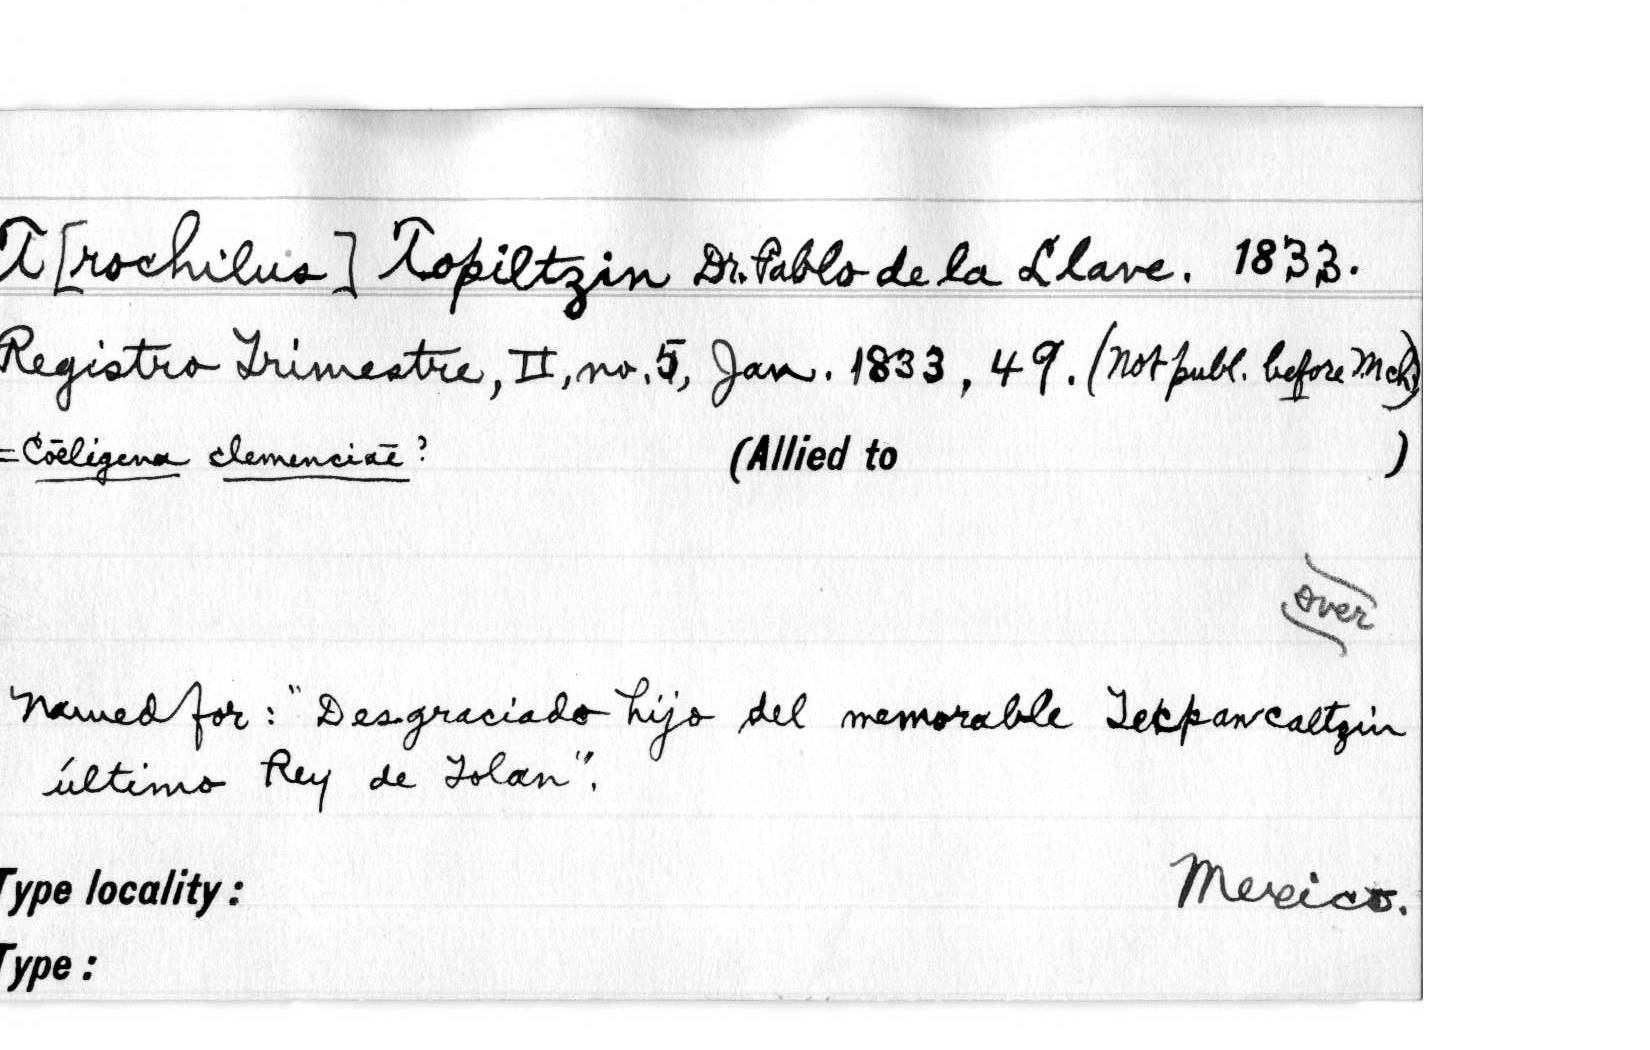 T[rochilus] Topiltzin Dr. Pablo de la Llave. 1833.
Registro Trimestre, II, no. 5, Jan. 1833, 49. (Not publ. before Mch.)
= Cōeligena clemenciāe ? (Allied to )
over
Named for: "Desgraciado hijo del memorable Tekpancaltzin
último Rey de Tolan".
Type locality: Mexico.
Type: